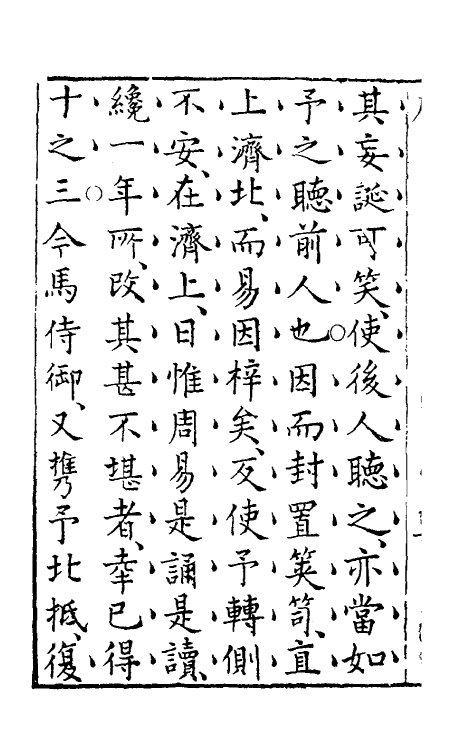 其妄誕可笑、使後人聽之、亦當如
予之聽前人也○因而封置篋笥、直
上濟北、而易因梓矣、反使予轉側
不安、在濟上、日惟周易是誦是讀、
纔一年所、改其甚不堪者、幸已得
十之三○今馬侍御、又携予北抵、復